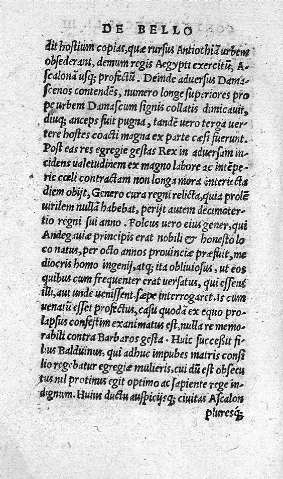 DE BELLO
dit hostium copias, quæ rursus Antiochiā urbem
obsederant, demum regis Aegypti exercitū, ad
Ascalonā usq; profectū. Deinde adversus Damas-
scenos contendēs, numero longe superiores pro
pe urbem Damascum signis collatis dimicauit,
diuq; anceps fuit pugna, tandē vero terga ver-
tere hostes coacti magna ex parte cæsi fuerunt.
Post eas res egregie gestas Rex in adversam in
cidens valetudinem ex magno labore ac intēpe-
rie cœli contractam non longa mora interiecta
diem obijt, Genero cura regni relicta, quia prolem
virilem nullā habebat, perijt autem decimoter-
tio regni sui anno. Folcus vero eius gener, qui
Andegauiæ principis erat nobili & honesto lo
co natus, per octo annos provinciæ præfuit, me
diocris homo ingenij, atq; ita obliviosus, ut eos
quibus cum frequenter erat versatus, qui essent
illi, aut unde uenissent sæpe interrogaret. Is cum
venatū esset profectus, casu quodā ex equo pro-
lapsus confestim exanimatus est, nulla re memo-
rabili contra Barbaros gesta. Huic successit fi
lius Balduinus, qui adhuc impubes matris consi
lio regebatur egregiæ mulieris, cui dū est obsecu
tus nil protinus egit optimo ac sapiente rege in
dignum. Huius ductu auspicijsq; ciuitas Ascalon
pluresq;